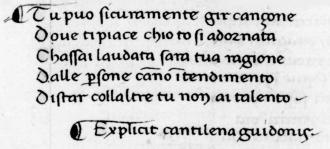 ¶ Tu puo sicuramente gir cançone
Doue ti piace chio to si adornata
Chassai laudata sara tua ragione
Dalle ꝑsone cãno ĩtendimento
Distar collaltre tu non ai talento ·
¶ Explicit cantilena guidonis ·